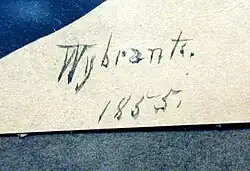 Wybrants.
1855.